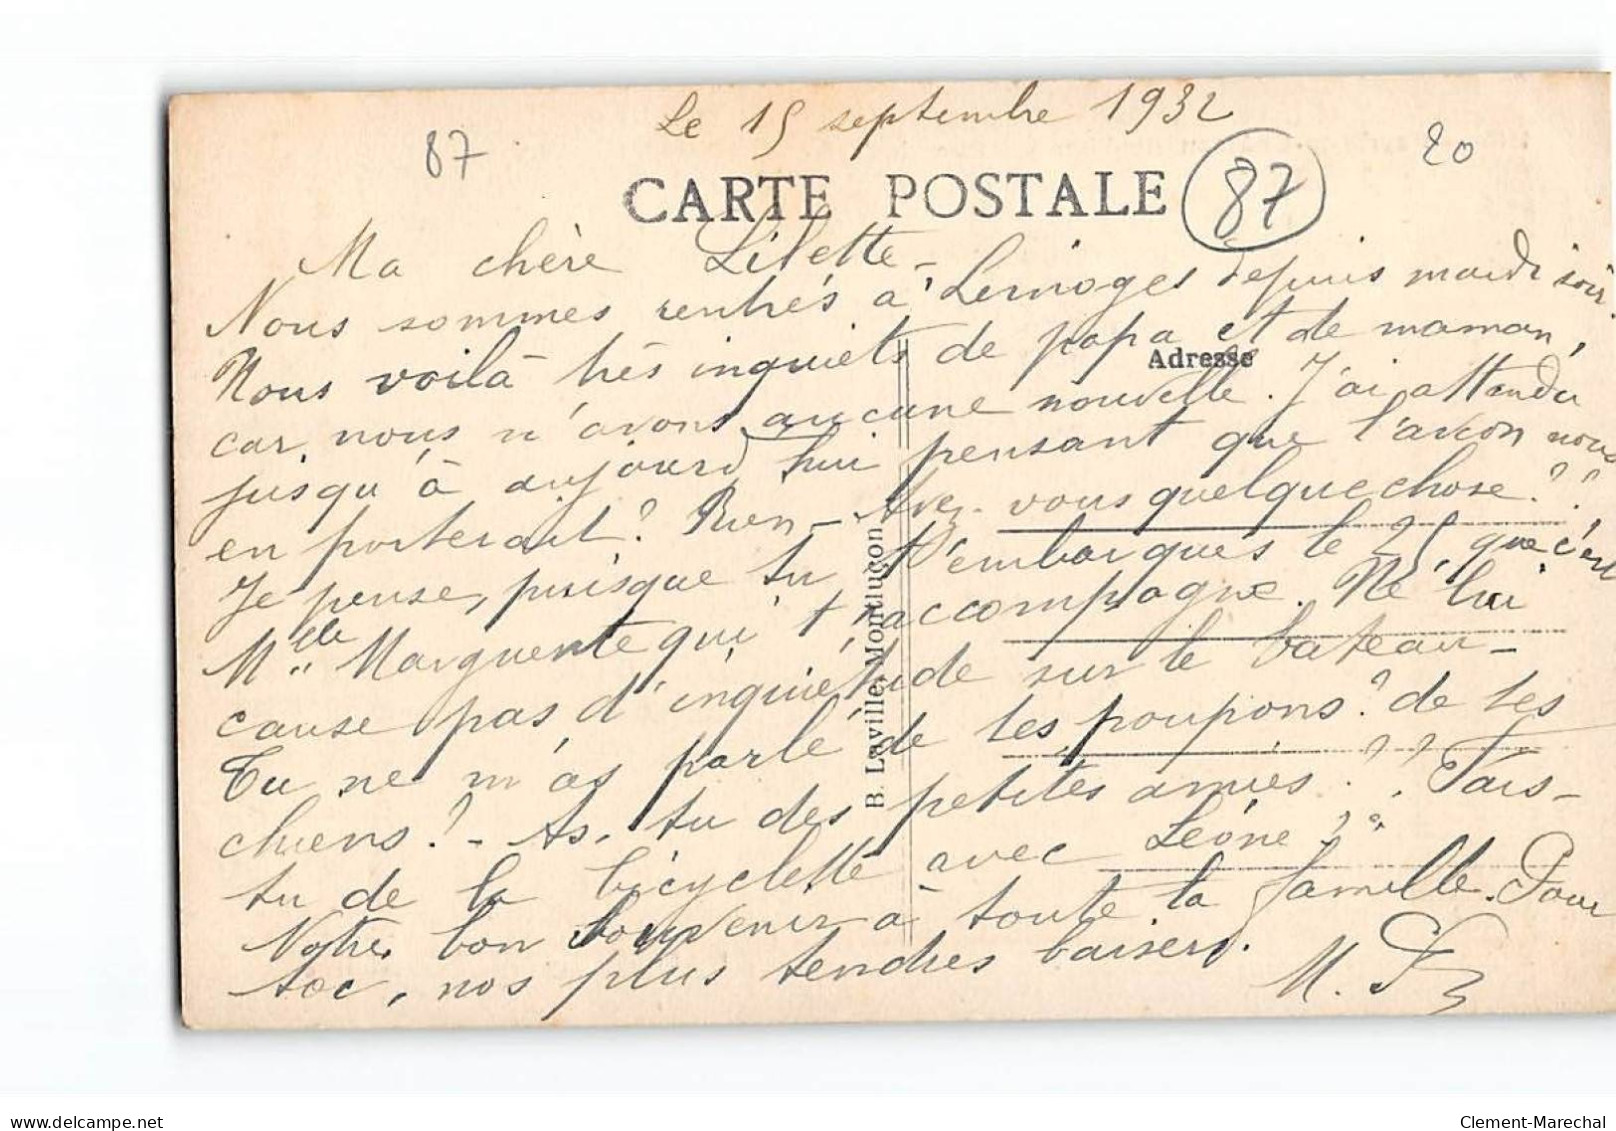 Le 15 septembre 1932
87
CARTE POSTALE
87
20
Ma chère Lilette -
Nous sommes rentrés à Limoges depuis mardi soir.
Nous voilà très inquiets de papa et de maman,
Adresse
car nous n'avons aucune nouvelle. J'ai attendu
jusqu'à aujourd'hui pensant que l'avion nous
en porterait? Rien - Avez-vous quelque chose??
Je pense, puisque tu t'embarques le 25, que c'est
Melle Marguerite qui t'raccompagne. Ne lui
cause pas d'inquiétude sur le bateau -
Tu ne m'as parlé de tes poupons? de tes
chiens? - As-tu des petites amies?? Fais-
tu de la bicyclette avec Léone??
Notre bon souvenir à toute la famille. Pour
toi, nos plus tendres baisers.
M.
B. Laville, Montluçon
delcampe.net
Clement-Marechal